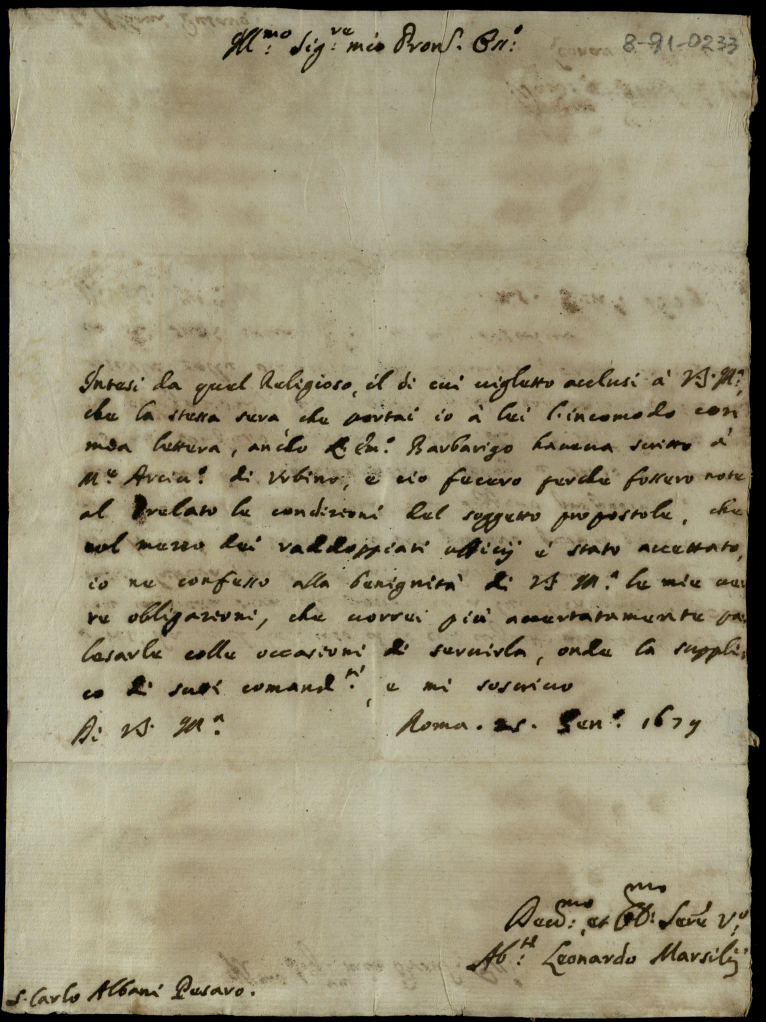 Ill.mo Sig.re mio Pron. Oss.o
8-91-0233
Intesi da quel Religioso, il di cui viglietto acclusi à VS. Ill.ma,
che la stessa sera che portai io à lei l'incomodo con
mea lettera, anco l'Em.o Barbarigo haveva scritto à
M.r Arciv.o di Urbino, e ciò fecero perche fossero note
al Prelato le condizioni del soggetto propostole, che
col mezzo dei raddoppiati ufficij è stato accettato,
io ne confesso alla benignità di VS Ill.ma le mie ve
re obligazioni, che vorrei più accertatamente pa
lesarle colle occasioni di servirla, onde la suppli
co di suoi comand.ti, e mi soscrivo
Di VS. Ill.ma Roma. 25. Gen.o 1679
Dev.mo et Obb.mo Serv.e V.o
Ab.te Leonardo Marsilij
S. Carlo Albani Pesaro.